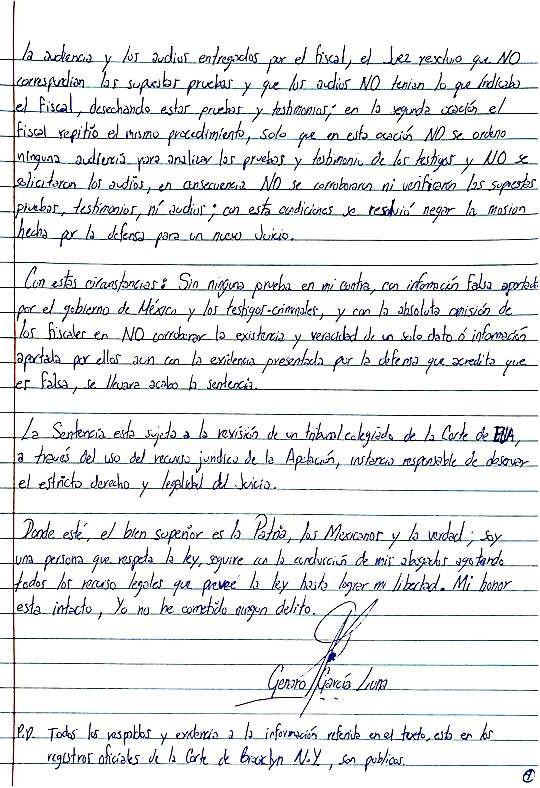 la audiencia y los audios entregados por el fiscal, el Juez resolvio que NO
correspondian las supuestas pruebas y que los audios NO tenian lo que indicaba
el fiscal, desechando estas pruebas y testimonios; en la segunda ocasión el
fiscal repitió el mismo procedimiento, solo que en esta ocasión NO se ordeno
ninguna audiencia para analizar las pruebas y testimonio de los testigos y NO se
solicitaron los audios, en consecuencia NO se corroboraron ni verificarón las supuestas
pruebas, testimonios, ní audios; con esta condiciones se resolvió negar la mosion
hecha por la defensa para un nuevo Juicio.
Con estas circunstancias: Sin ninguna prueba en mi contra, con información falsa aportada
por el gobierno de México y los testigos-criminales, y con la absoluta omisión de
los fiscales en NO corroborar la existencia y veracidad de un solo dato ó información
aportada por ellos aun con la evidencia presentada por la defensa que acredita que
es falsa, se llevara acabo la sentencia.
La Sentencia esta sujeta a la revisión de un tribunal colegiado de la Corte de EUA,
a través del uso del recurso jurídico de la Apelación, instancia responsable de observar
el estricto derecho y legalidad del Juicio.
Donde esté, el bien superior es la Patria, los Mexicanos y la verdad; soy
una persona que respeta la ley, seguire con la conducción de mis abogados agotando
todos los recurso legales que preveé la ley hasta lograr mi libertad. Mi honor
esta intacto, Yo no he cometido ningun delito.
Genaro García Luna
P.D. Todos los respaldos y evidencia a la información referida en el texto, esta en los
registros oficiales de la Corte de Brooklyn N.Y., son publicos.